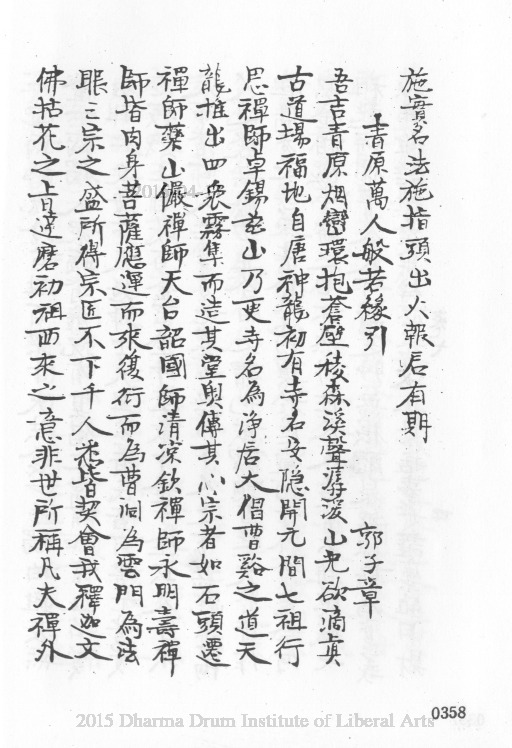 施實名法施指頭出火報居有期
青原萬人般若緣引
郭子章
吾吉青原烟巒環抱蒼壁稜森溪聲潺湲山光欲滴真
古道塲福地自唐神龍初有寺名安隐開元間七祖行
思禪師卓錫茲山乃更寺名為淨居大倡曹谿之道天
龍推出四衆霧集而造其堂奥傳其心宗者如石頭遷
禪師藥山儼禪師天台韶國師清凉欽禪師永明壽禪
師皆肉身菩薩應運而來復衍而為曹洞為雲門為法
眼三宗之盛所得宗匠不下千人悉皆契會我釋迦文
佛拈花之旨達磨初祖西來之意非世所稱凡夫禪外
0358
2015 Dharma Drum Institute of Liberal Arts